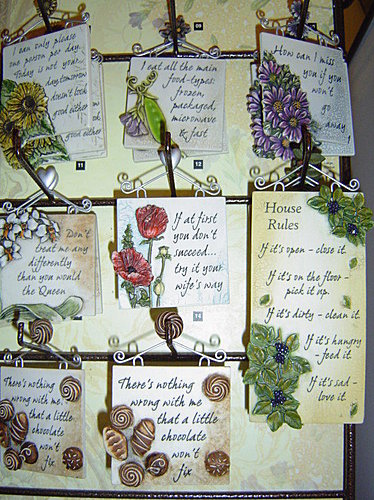 I can only please
one person per day.
Today is not your
day, tomorrow
doesn't look
good either
good either
I eat all the main
food-types:
frozen,
packaged,
microwave
& fast
How can I miss
you if you
won't
go
away!
09
11
12
Don't
treat me any
differently
than you would
the Queen
If at first
you don't
succeed...
try it your
wife's way
House
Rules
If it's open - close it.
If it's on the floor -
pick it up.
If it's dirty - clean it.
If it's hungry
- feed it.
If it's sad -
love it.
14
There's nothing
wrong with me
that a little
chocolate
won't
fix
There's nothing
wrong with me
that a little
chocolate
won't
fix